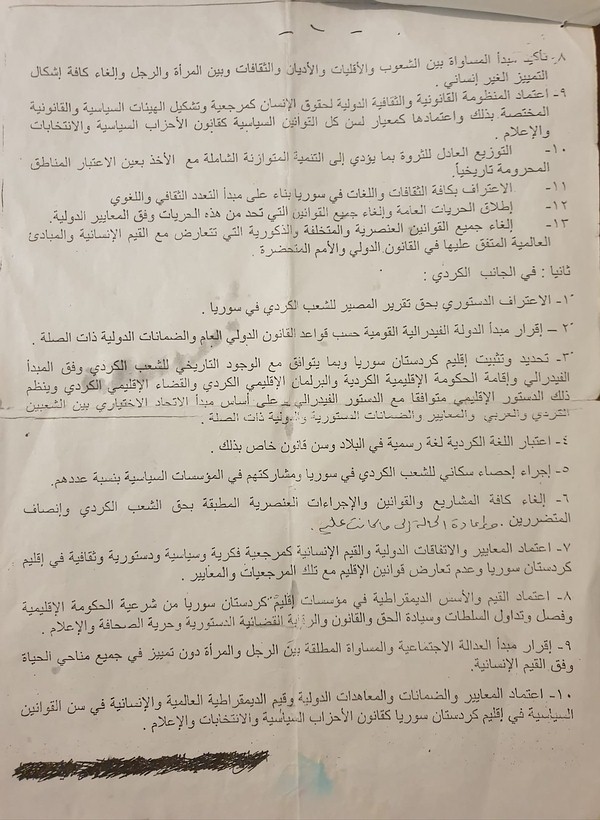 ٨- تأكيد مبدأ المساواة بين الشعوب والأقليات والأديان والثقافات وبين المرأة والرجل وإلغاء كافة إشكال
التمييز الغير إنساني.
٩- اعتماد المنظومة القانونية والثقافية الدولية لحقوق الإنسان كمرجعية وتشكيل الهيئات السياسية والقانونية
المختصة بذلك واعتمادها كمعيار لسن كل القوانين السياسية كقانون الأحزاب السياسية والانتخابات
والإعلام .
١٠- التوزيع العادل للثروة بما يؤدي إلى التنمية المتوازنة الشاملة مع الأخذ بعين الاعتبار المناطق
المحرومة تاريخياً.
١١- الاعتراف بكافة الثقافات واللغات في سوريا بناء على مبدأ التعدد الثقافي واللغوي
١٢- إطلاق الحريات العامة وإلغاء جميع القوانين التي تحد من هذه الحريات وفق المعايير الدولية.
١٣- إلغاء جميع القوانين العنصرية والمتخلفة والذكورية التي تتعارض مع القيم الإنسانية والمبادئ
العالمية المتفق عليها في القانون الدولي والأمم المتحضرة .
ثانيا : في الجانب الكردي :
١- الاعتراف الدستوري بحق تقرير المصير للشعب الكردي في سوريا .
٢– إقرار مبدأ الدولة الفيدرالية القومية حسب قواعد القانون الدولي العام والضمانات الدولية ذات الصلة .
٣- تحديد وتثبيت إقليم كردستان سوريا وبما يتوافق مع الوجود التاريخي للشعب الكردي وفق المبدأ
الفيدرالي وإقامة الحكومة الإقليمية الكردية والبرلمان الإقليمي الكردي والقضاء الإقليمي الكردي وينظم
ذلك الدستور الإقليمي متوافقا مع الدستور الفيدرالي – على أساس مبدأ الاتحاد الاختياري بين الشعبين
الكردي والعربي والمعايير والضمانات الدستورية والدولية ذات الصلة .
٤- اعتبار اللغة الكردية لغة رسمية في البلاد وسن قانون خاص بذلك .
٥- إجراء إحصاء سكاني للشعب الكردي في سوريا ومشاركتهم في المؤسسات السياسية بنسبة عددهم.
٦- إلغاء كافة المشاريع والقوانين والإجراءات العنصرية المطبقة بحق الشعب الكردي وإنصاف
المتضررين . وإعادة الحالة إلى ما كانت عليه .
٧- اعتماد المعايير والاتفاقات الدولية والقيم الإنسانية كمرجعية فكرية وسياسية ودستورية وثقافية في إقليم
كردستان سوريا وعدم تعارض قوانين الإقليم مع تلك المرجعيات والمعايير .
٨- اعتماد القيم والأسس الديمقراطية في مؤسسات إقليم كردستان سوريا من شرعية الحكومة الإقليمية
وفصل وتداول السلطات وسيادة الحق والقانون والرقابة القضائية الدستورية وحرية الصحافة والإعلام .
٩- إقرار مبدأ العدالة الاجتماعية والمساواة المطلقة بين الرجل والمرأة دون تمييز في جميع مناحي الحياة
وفق القيم الإنسانية.
١٠- اعتماد المعايير والضمانات والمعاهدات الدولية وقيم الديمقراطية العالمية والإنسانية في سن القوانين
السياسية في إقليم كردستان سوريا كقانون الأحزاب السياسية والانتخابات والإعلام .